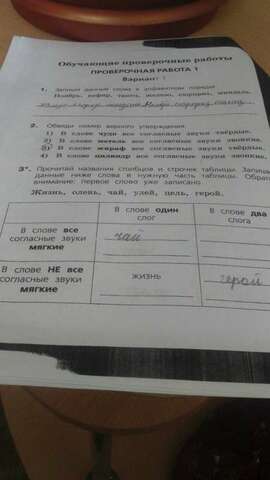 Обучающие проверочные работы
ПРОВЕРОЧНАЯ РАБОТА 1
Вариант 1
1. Запиши данные слова в алфавитном порядке.
Ноябрь, кефир, такси, желток, скорлупа, миндаль.
2. Обведи номер верного утверждения.
1) В слове чудо все согласные звуки твёрдые.
2) В слове метель все согласные звуки звонкие.
3) В слове жираф все согласные звуки твёрдые.
4) В слове цилиндр все согласные звуки звонкие.
3*. Прочитай названия столбцов и строчек таблицы. Запиши
данные ниже слова в нужную часть таблицы. Обрат
внимание: первое слово уже записано.
Жизнь, олень, чай, улей, цель, герой.
В слове один слог
В слове два слога
В слове все согласные звуки мягкие
чай
В слове НЕ все согласные звуки мягкие
жизнь
герой